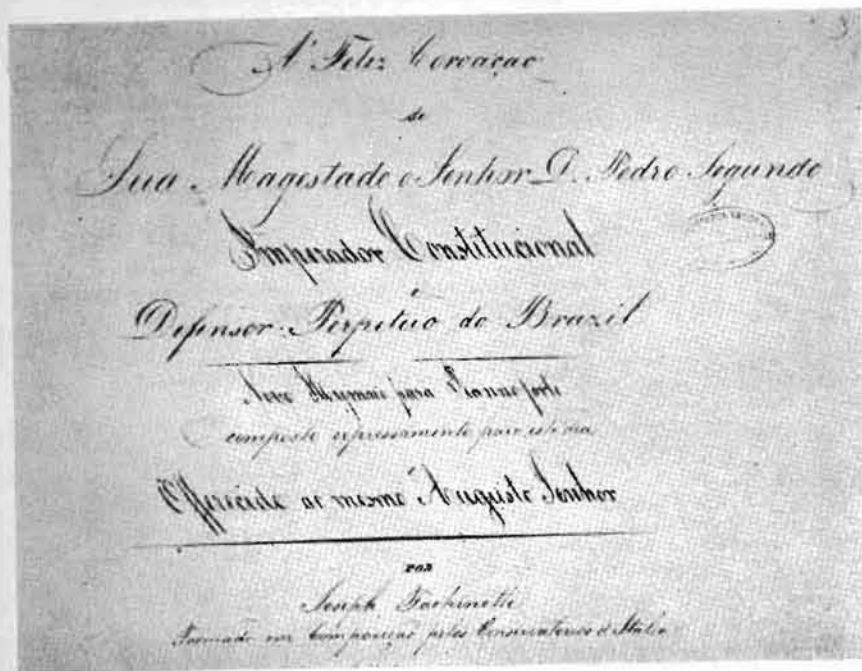 A' Feliz Coroaçaõ
de
Sua Magestade o Senhor D. Pedro Segundo
Imperador Constitucional
e
Defensor Perpetuo do Brazil
Novo Hymno para Pianno forte
composto expressamente para este dia
Offerecido ao mesmo Augusto Senhor
POR
Joseph Fachinetti
Formado em Composiçaõ pelos Conservatorios d'Italia